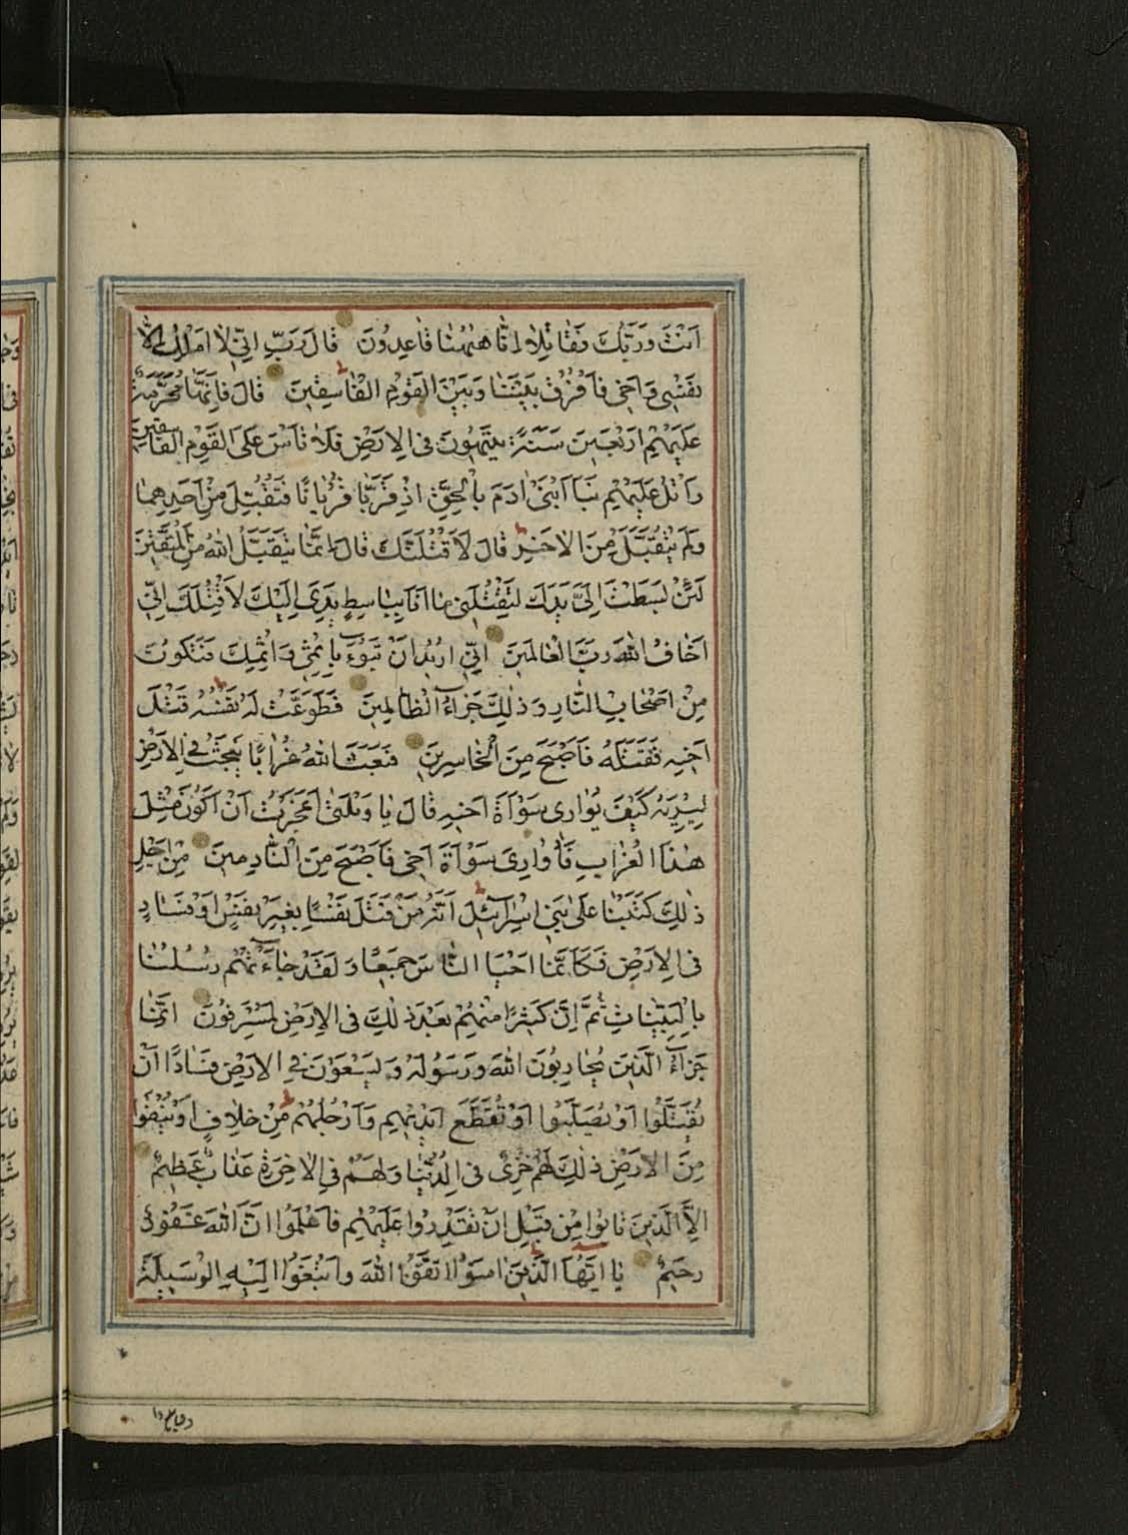 اَنْتَ وَرَبُّكَ فَقَاتِلَا اِنَّا هٰهُنَا قَاعِدُونَ قَالَ رَبِّ اِنّى لَا اَمْلِكُ اِلَّا
نَفْسى وَاَخى فَافْرُقْ بَيْنَنَا وَبَيْنَ الْقَوْمِ الْفَاسِقينَ قَالَ فَاِنَّهَا مُحَرَّمَةٌ
عَلَيْهِمْ اَرْبَعينَ سَنَةً يَتيهُونَ فى الْاَرْضِ فَلَا تَاْسَ عَلَى الْقَوْمِ الْفَاسِقينَ
وَاتْلُ عَلَيْهِمْ نَبَاَ ابْنَىْ اٰدَمَ بِالْحَقِّ اِذْ قَرَّبَا قُرْبَانًا فَتُقُبِّلَ مِنْ اَحَدِهِمَا
وَلَمْ يُتَقَبَّلْ مِنَ الْاٰخَرِ قَالَ لَاَقْتُلَنَّكَ قَالَ اِنَّمَا يَتَقَبَّلُ اللّٰهُ مِنَ الْمُتَّقينَ
لَئِنْ بَسَطْتَ اِلَىَّ يَدَكَ لِتَقْتُلَنى مَا اَنَا بِبَاسِطٍ يَدِىَ اِلَيْكَ لِاَقْتُلَكَ اِنّى
اَخَافُ اللّٰهَ رَبَّ الْعَالَمينَ اِنّى اُريدُ اَنْ تَبُوءَ بِاِثْمى وَاِثْمِكَ فَتَكُونَ
مِنْ اَصْحَابِ النَّارِ وَذٰلِكَ جَزَاءُ الظَّالِمينَ فَطَوَّعَتْ لَهُ نَفْسُهُ قَتْلَ
اَخيهِ فَقَتَلَهُ فَاَصْبَحَ مِنَ الْخَاسِرينَ فَبَعَثَ اللّٰهُ غُرَابًا يَبْحَثُ فى الْاَرْضِ
لِيُرِيَهُ كَيْفَ يُوَارى سَوْاٰةَ اَخيهِ قَالَ يَا وَيْلَتٰى اَعَجَزْتُ اَنْ اَكُونَ مِثْلَ
هٰذَا الْغُرَابِ فَاُوَارِىَ سَوْاٰةَ اَخى فَاَصْبَحَ مِنَ النَّادِمينَ مِنْ اَجْلِ
ذٰلِكَ كَتَبْنَا عَلٰى بَنى اِسْرَائلَ اَنَّهُ مَنْ قَتَلَ نَفْسًا بِغَيْرِ نَفْسٍ اَوْ فَسَادٍ
فى الْاَرْضِ فَكَاَنَّمَا اَحْيَا النَّاسَ جَميعًا وَلَقَدْ جَاءَتْهُمْ رُسُلُنَا
بِالْبَيِّنَاتِ ثُمَّ اِنَّ كَثيرًا مِنْهُمْ بَعْدَ ذٰلِكَ فى الْاَرْضِ لَمُسْرِفُونَ اِنَّمَا
جَزَاءُ الَّذينَ يُحَارِبُونَ اللّٰهَ وَرَسُولَهُ وَيَسْعَوْنَ فى الْاَرْضِ فَسَادًا اَنْ
يُقَتَّلُوا اَوْ يُصَلَّبُوا اَوْ تُقَطَّعَ اَيْديهِمْ وَاَرْجُلُهُمْ مِنْ خِلَافٍ اَوْ يُنْفَوْا
مِنَ الْاَرْضِ ذٰلِكَ لَهُمْ خِزْىٌ فى الدُّنْيَا وَلَهُمْ فِى الْاٰخِرَةِ عَذَابٌ عَظيمٌ
اِلَّا الَّذينَ تَابُوا مِنْ قَبْلِ اَنْ تَقْدِرُوا عَلَيْهِمْ فَاعْلَمُوا اَنَّ اللّٰهَ غَفُورٌ
رَحيمٌ يَا اَيُّهَا الَّذينَ اٰمَنُوا اتَّقُوا اللّٰهَ وَابْتَغُوا اِلَيْهِ الْوَسيلَةَ